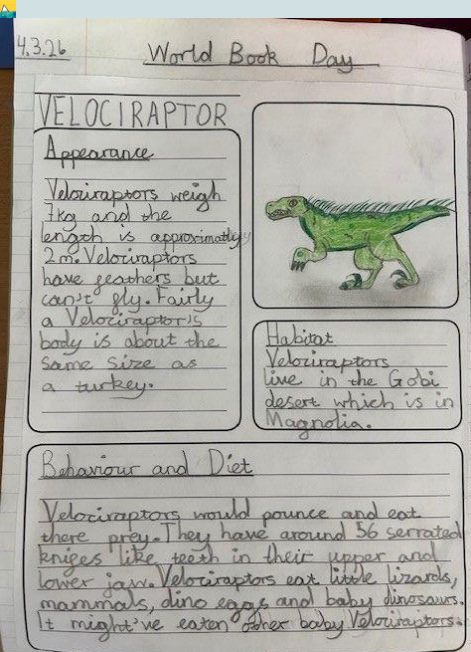 4.3.26
World Book Day
VELOCIRAPTOR
Appearance
Velociraptors weigh
7kg and the
length is approximatly
2m. Velociraptors
have feathers but
can't fly. Fairly
a Velociraptor's
body is about the
same size as
a turkey.
Habitat
Velociraptors
live in the Gobi
desert which is in
Magnolia.
Behaviour and Diet
Velociraptors would pounce and eat
there prey. They have around 56 serrated
knifes like teeth in their upper and
lower jaw. Velociraptors eat little lizards,
mammals, dino eggs and baby dinosaurs.
It might've eaten other baby Velociraptors.